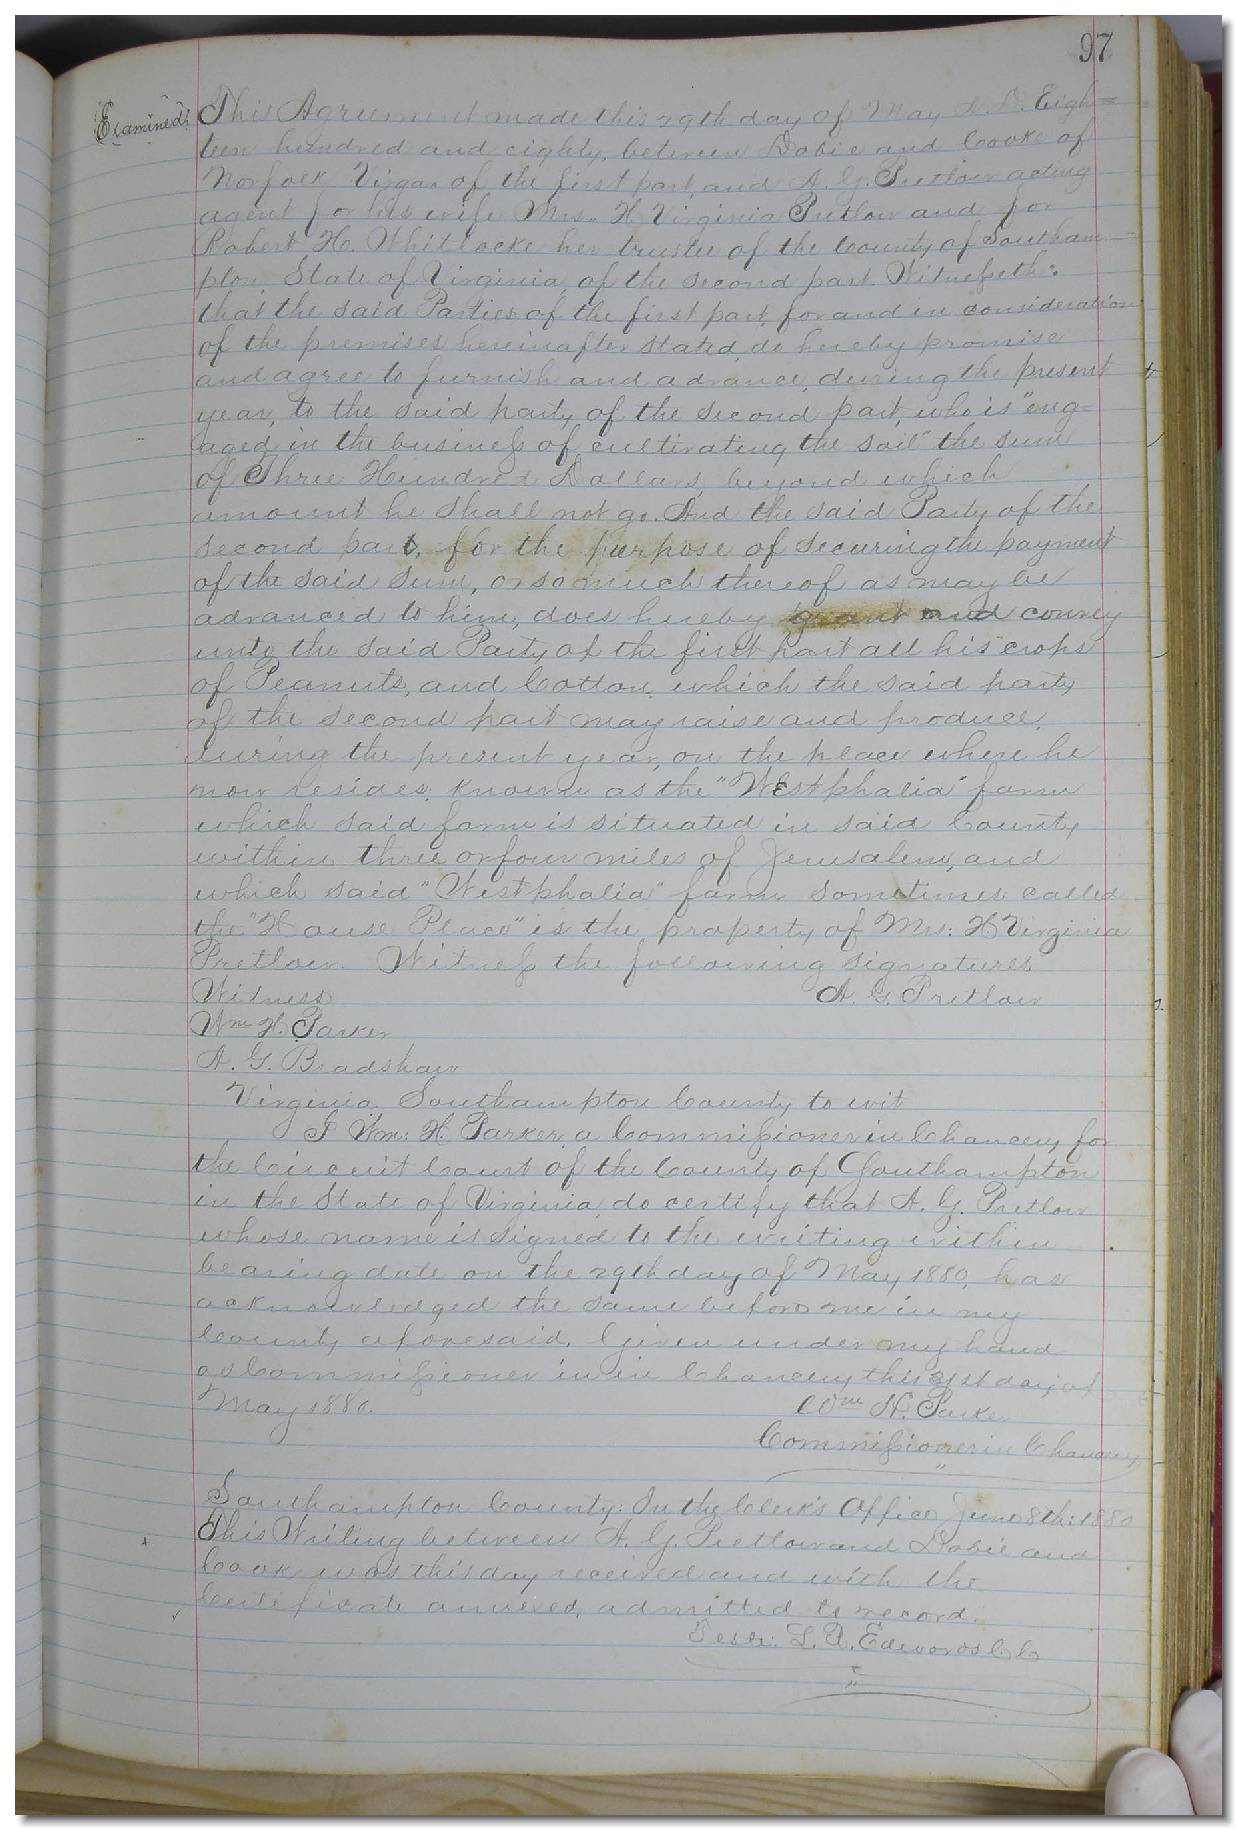 97
Examined.
This Agreement made this 29th day of May A. D. Eigh=
teen hundred and eighty, between Dobie and Cooke of
Norfolk Virga. of the first part, and A. G. Pretlow acting
agent for his wife Mrs. H. Virginia Pretlow and for
Robert H. Whitlocke her trustee of the County of Southam-
pton, State of Virginia of the second part. Witnesseth:
that the said Parties of the first part, for and in consideration
of the premises hereinafter stated, do hereby promise
and agree to furnish and advance, during the present
year, to the said party of the second part, who is "eng=
aged in the business of cultivating the soil" the sum
of Three Hundred Dollars, beyond which
amount he shall not go. And the said Party of the
second part, for the purpose of securing the payment
of the said Sum, or so much thereof as may be
advanced to him, does hereby grant and convey
unto the said Party of the first part all his crops
of Peanuts, and Cotton, which the said party
of the second part may raise and produce,
during the present year, on the place where he
now resides, known as the "Westphalia" farm
which said farm is situated in said County
within three or four miles of Jerusalem, and
which said "Westphalia" farm sometimes called
the "House Place" is the property of Mrs: H Virginia
Pretlow. Witness the following signatures
Witness A. G. Pretlow
Wm H. Parker
A. G. Bradshaw
Virginia Southampton County to wit
I Wm: H. Parker, a Commissioner in Chancery for
the Circuit Court of the County of Southampton
in the State of Virginia, do certify that A. G. Pretlow
whose name is signed to the writing within
bearing date on the 29th day of May, 1880, has
acknowledged the same before me in my
County aforesaid. Given under my hand
as Commissioner in in Chancery this 31st day of
May 1880. Wm H. Parker
Commissioner in Chancery
Southampton County: In the Clerk's Office June 8th: 1880
This Writing between A. G. Pretlow and Dobie and
Cook was this day received and with the
Certificate annexed, admitted to record.
Teste: L. R. Edwards C C